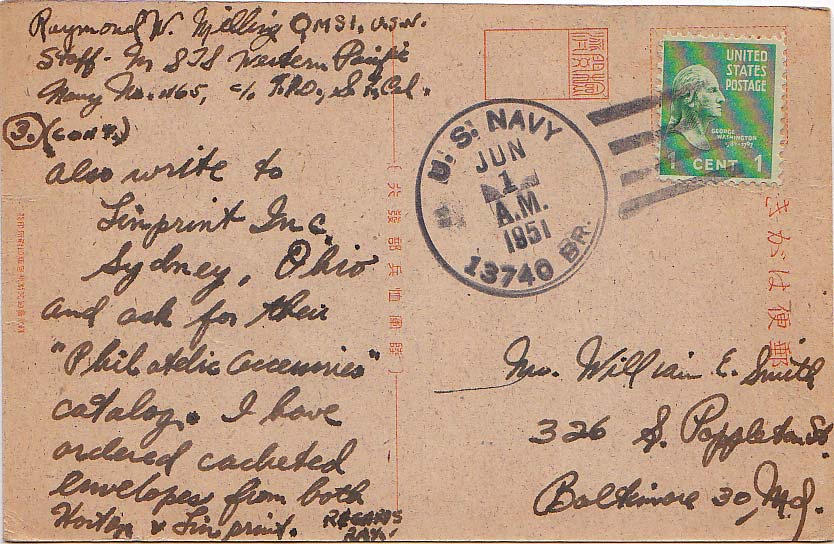 Raymond W. Milling QMS1, U.S.N.
Staff - In STS Western Pacific
Navy No. 1165, c/o F.P.O., S.F., Cal.
3. (CONT.)
also write to
Linprint Inc.
Sydney, Ohio
and ask for their
"Philatelic accessories"
catalog. I have
ordered cacheted
envelopes from both
Horton & Linprint.
REGARDS
RAY!
U.S. NAVY
JUN
1
A.M.
1951
13740 BR.
UNITED
STATES
POSTAGE
GEORGE
WASHINGTON
1789-1797
1 CENT 1
きがは便郵
Mr. William E. Smith
326 S. Poppleton St.
Baltimore 30, Md.